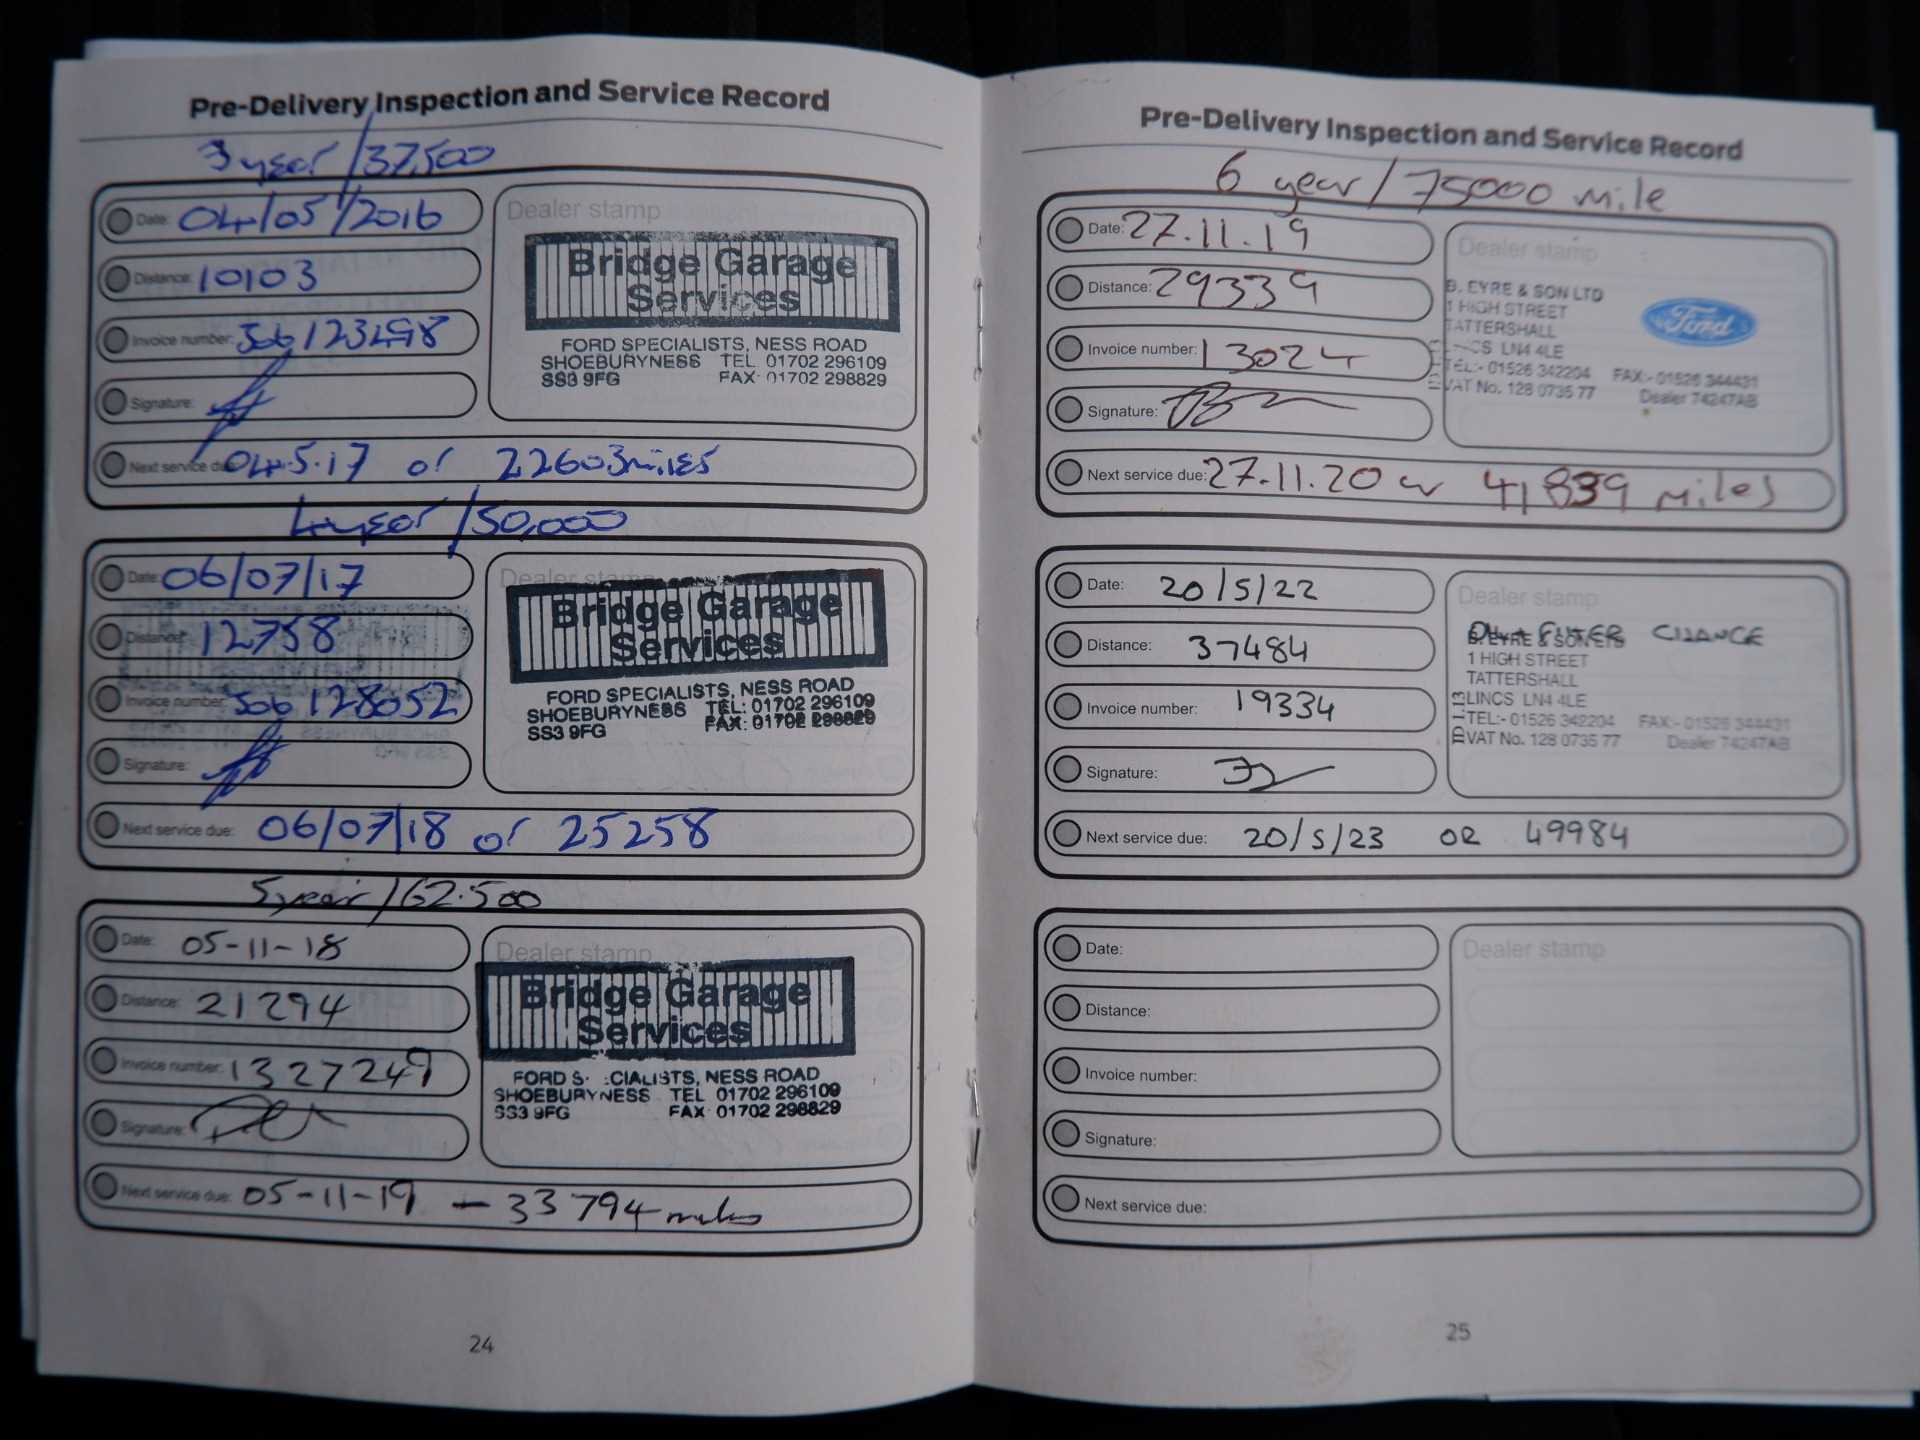 Pre-Delivery Inspection and Service Record
3 year / 37,500
Date: 04/05/2016
Distance: 10103
Invoice number: Job 123498
Signature:
Next service due: 04.5.17 or 22603 miles
Dealer stamp
Bridge Garage
Services
FORD SPECIALISTS, NESS ROAD
SHOEBURYNESS TEL 01702 296109
SS3 9FG FAX: 01702 298829
4 year / 50,000
Date: 06/07/17
Distance: 12758
Invoice number: Job 128052
Signature:
Next service due: 06/07/18 or 25258
Dealer stamp
Bridge Garage
Services
FORD SPECIALISTS, NESS ROAD
SHOEBURYNESS TEL: 01702 296109
SS3 9FG FAX: 01702 298829
5 year / 62.500
Date: 05-11-18
Distance: 21294
Invoice number: 1327249
Signature:
Next service due: 05-11-19 - 33794 miles
Dealer stamp
Bridge Garage
Services
FORD S CIALISTS, NESS ROAD
SHOEBURYNESS TEL 01702 296109
SS3 9FG FAX 01702 298829
24
Pre-Delivery Inspection and Service Record
6 year / 75000 mile
Date: 27.11.19
Distance: 29339
Invoice number: 13024
Signature:
Next service due: 27.11.20 or 41839 miles
Dealer stamp
B. EYRE & SON LTD
1 HIGH STREET
TATTERSHALL
LINCS LN4 4LE
TEL:- 01526 342204 FAX:- 01526 344431
VAT No. 128 0735 77 Dealer 74247AB
Ford
Date: 20/5/22
Distance: 37484
Invoice number: 19334
Signature:
Next service due: 20/5/23 OR 49984
Dealer stamp
OIL + FILTER CHANGE
B. EYRE & SON
1 HIGH STREET
TATTERSHALL
LINCS LN4 4LE
TEL:- 01526 342204 FAX:- 01526 344431
VAT No. 128 0735 77 Dealer 74247AB
Date:
Distance:
Invoice number:
Signature:
Next service due:
Dealer stamp
25